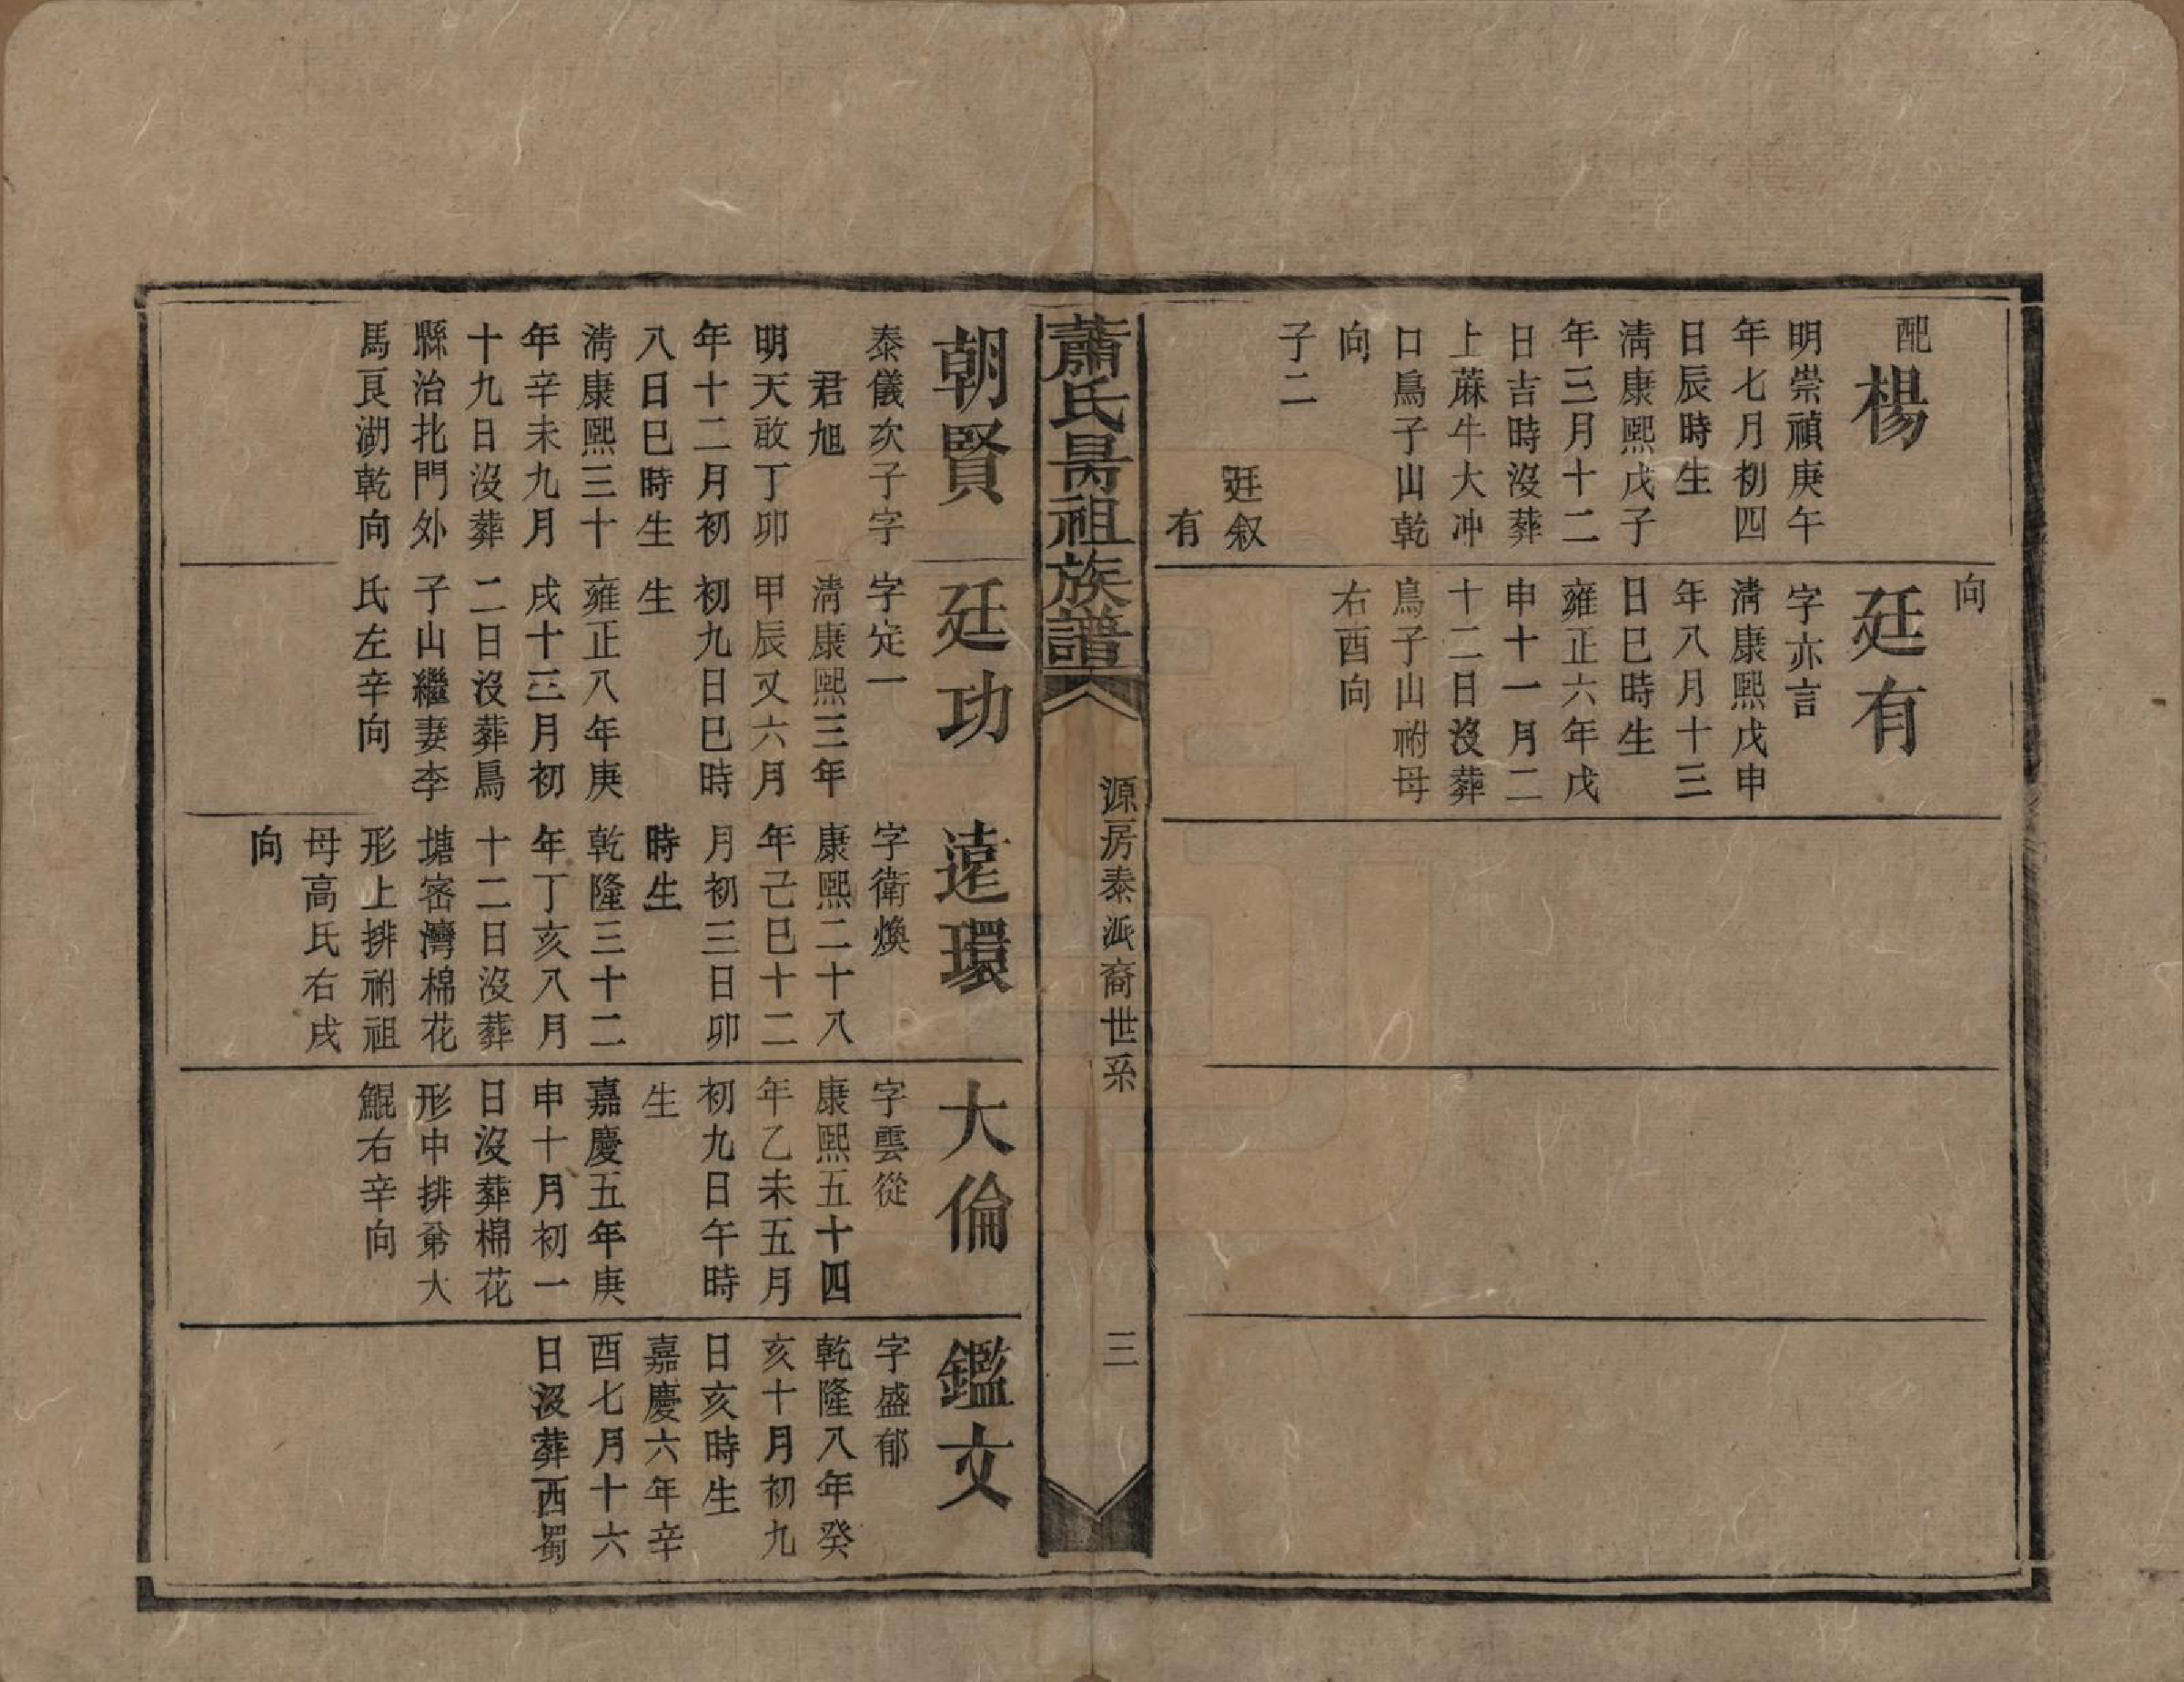 配楊
明崇禎庚午
年七月初四
日辰時生
淸康熙戊子
年三月十二
日吉時沒葬
上蔴牛大冲
口鳥子山乾
向
子二
廷叙
有
向
廷有
字亦言
淸康熙戊申
年八月十三
日巳時生
雍正六年戊
申十一月二
十二日沒葬
鳥子山祔母
右酉向
蕭氏昺祖族譜
源房泰派裔世系
三
朝賢
泰儀次子字
君旭
明天啟丁卯
年十二月初
八日巳時生
淸康熙三十
年辛未九月
十九日沒葬
縣治北門外
馬良湖乾向
廷功
字定一
淸康熙三年
甲辰又六月
初九日巳時
生
雍正八年庚
戌十三月初
二日沒葬鳥
子山繼妻李
氏左辛向
遠環
字衛煥
康熙二十八
年己巳十二
月初三日卯
時生
乾隆三十二
年丁亥八月
十二日沒葬
塘密灣棉花
形上排祔祖
母高氏右戌
向
大倫
字雲從
康熙五十四
年乙未五月
初九日午時
生
嘉慶五年庚
申十月初一
日沒葬棉花
形中排弟大
鯤右辛向
鑑文
字盛郁
乾隆八年癸
亥十月初九
日亥時生
嘉慶六年辛
酉七月十六
日沒葬西蜀